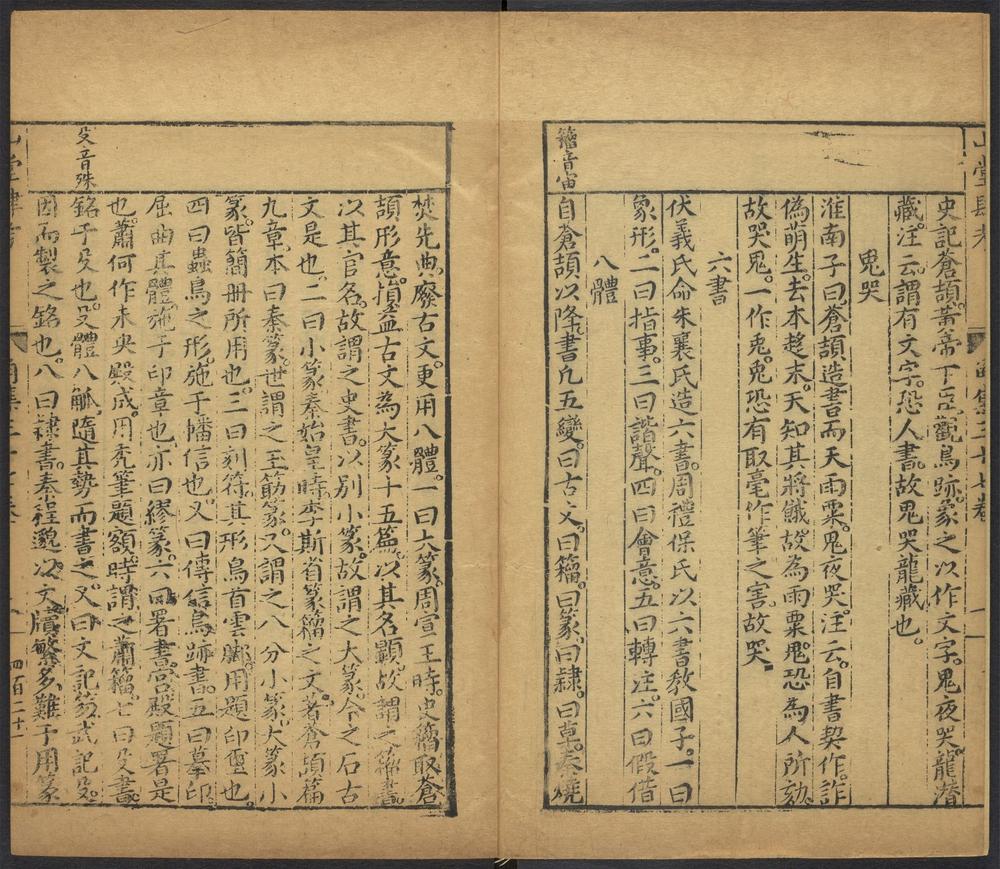 史記蒼頡黃帝下臣觀鳥跡象之以作文字鬼夜哭龍潛
藏注云謂有文字恐人書故鬼哭龍藏也
鬼哭
淮南子曰蒼頡造書而天雨粟鬼夜哭注云自書契作詐
偽萌生去本趍末天知其將餓故為雨粟鬼恐為人所劾
故哭鬼一作兎兎恐有取毫作筆之害故哭
六書
伏羲氏命朱襄氏造六書周禮保氏以六書教國子一曰
象形二曰指事三曰諧聲四曰會意五曰轉注六曰假借
八體
籀音宙
自蒼頡以降書凡五變曰古文曰籀曰篆曰隸曰草秦燒
焚先典廢古文更用八體一曰大篆周宣王時史籀取蒼
頡形意損益古文為大篆十五篇以其名顯故謂之籀書
以其官名故謂之史書以別小篆故謂之大篆今之石古
文是也二曰小篆秦始皇時李斯省篆籀之文著蒼頡篇
九章本曰秦篆世謂之玉筯篆又謂之八分小篆大篆小
篆皆簡冊所用也三曰刻符其形鳥首雲脚用題印璽也
四曰蟲鳥之形施于幡信也又曰傳信鳥跡書五曰摹印
屈曲其體施于印章也亦曰繆篆六曰署書宮殿題署是
也蕭何作未央殿成用禿筆題額時謂之蕭籀七曰殳書
殳音殊
銘于殳也殳體八觚隨其勢而書之又曰文記笏武記殳
因而製之銘也八曰隸書秦程邈以文牘繁多難于用篆
四百二十一